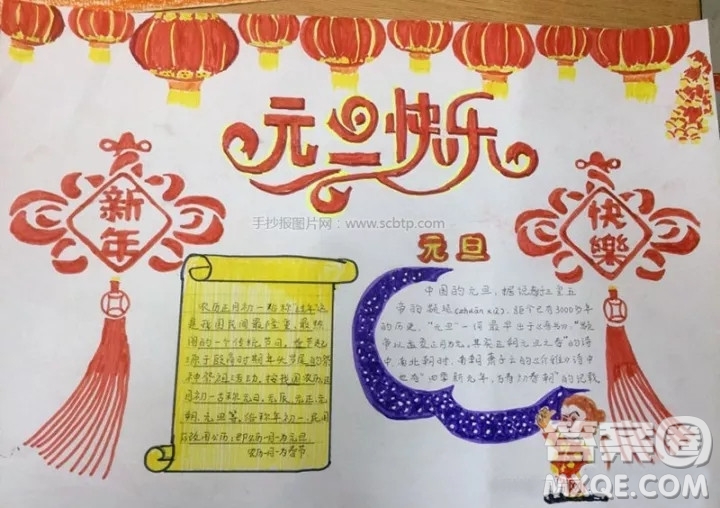 元旦快乐
新年
快樂
手抄报图片网：www.scbtp.com
元旦
农历正月初一俗称"过年"这
是我国民间最隆重，最热
闹的一个传统节日。
原于殷商时期年头岁尾的祭
神祭祖活动。按我国农历
月初一古称元日、元辰、元正、元
朔、元旦等。俗称年初一，民国
改用公历：即公历一月一日为元旦
农历一月一为春节
中国的元旦，据说起于三皇五
帝的颛顼(zhuān xū)，距今已有3000多年
的历史。"元旦"一词最早出于《晋书》："颛
帝以孟夏正月为元，其实正朔元旦之春"的诗
中有北朝时，南朝萧子云的《介雅》诗中
也有"四季新元年，万寿初春朝"的记载
答案圈
MXQE.COM